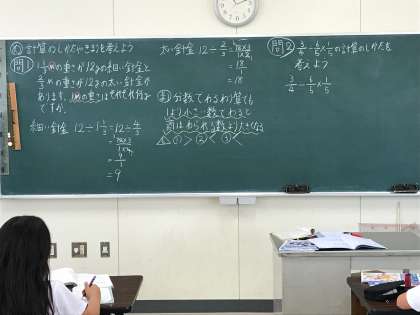 め 計算のしかた(きまり)を考えよう
問1 1 1/3mの重さが12gの細い針金と
2/3mの重さが12gの太い針金が
あります。1mの重さはそれぞれ何g
細い針金 12÷1 1/3=12÷4/3
=9/1
=9
太い針金 12÷2/3=12×3/1×2
=18/1
=18
ま 分数でわるわり算でも
より小さい数でわると
商はわられる数より大きくなる
問2 3/4÷6/5×1/5の計算のしかたを
考えよう
3/4÷6/5×1/5